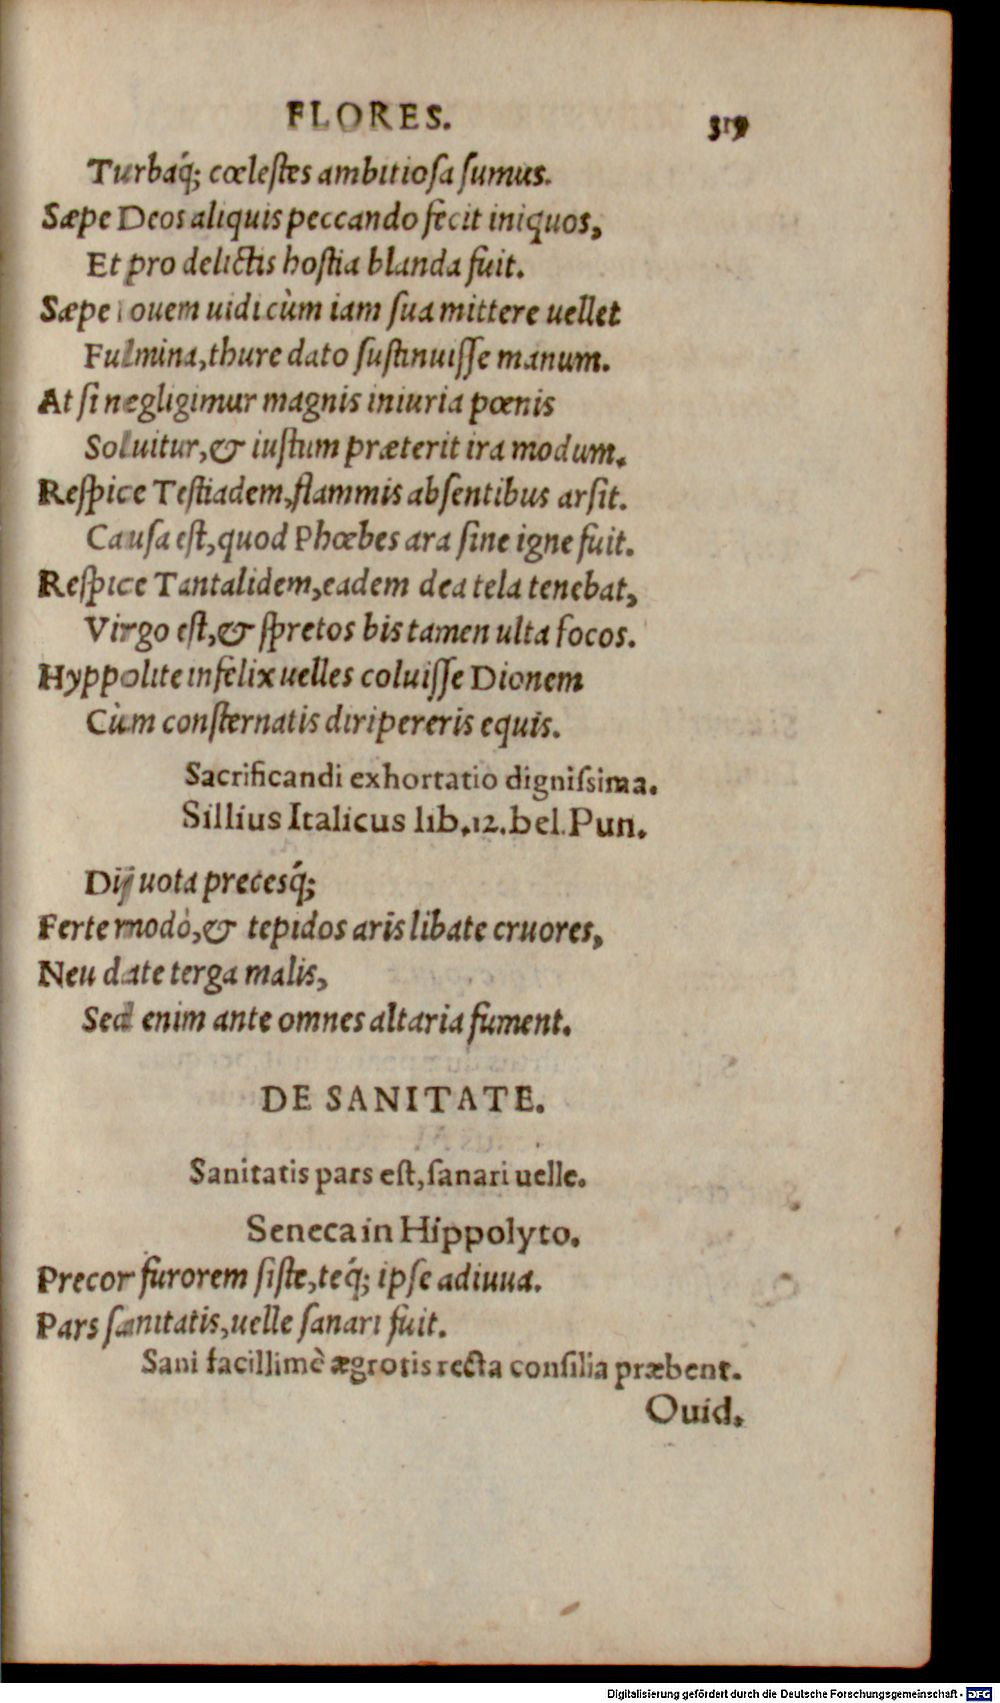 FLORES. 319
Turbaq́; cœlestes ambitiosa sumus.
Sæpe Deos aliquis peccando fecit iniquos,
Et pro delictis hostia blanda fuit.
Sæpe Iouem uidi cùm iam sua mittere uellet
Fulmina, thure dato sustinuisse manum.
At si negligimur magnis iniuria pœnis
Soluitur, & iustum præterit ira modum.
Respice Testiadem, flammis absentibus arsit.
Causa est, quod Phœbes ara sine igne fuit.
Respice Tantalidem, eadem dea tela tenebat,
Virgo est, & spretos bis tamen ulta focos.
Hyppolite infelix uelles coluisse Dionem
Cùm consternatis diripereris equis.
Sacrificandi exhortatio dignissima.
Sillius Italicus lib. 12. bel. Pun.
Dij uota precesq́;
Ferte modò, & tepidos aris libate cruores,
Neu date terga malis,
Sed enim ante omnes altaria fument.
DE SANITATE.
Sanitatis pars est, sanari uelle.
Seneca in Hippolyto.
Precor furorem siste, teq́; ipse adiuua.
Pars sanitatis, uelle sanari fuit.
Sani facillimè ægrotis recta consilia præbent.
Ouid.
Digitalisierung gefördert durch die Deutsche Forschungsgemeinschaft - DFG